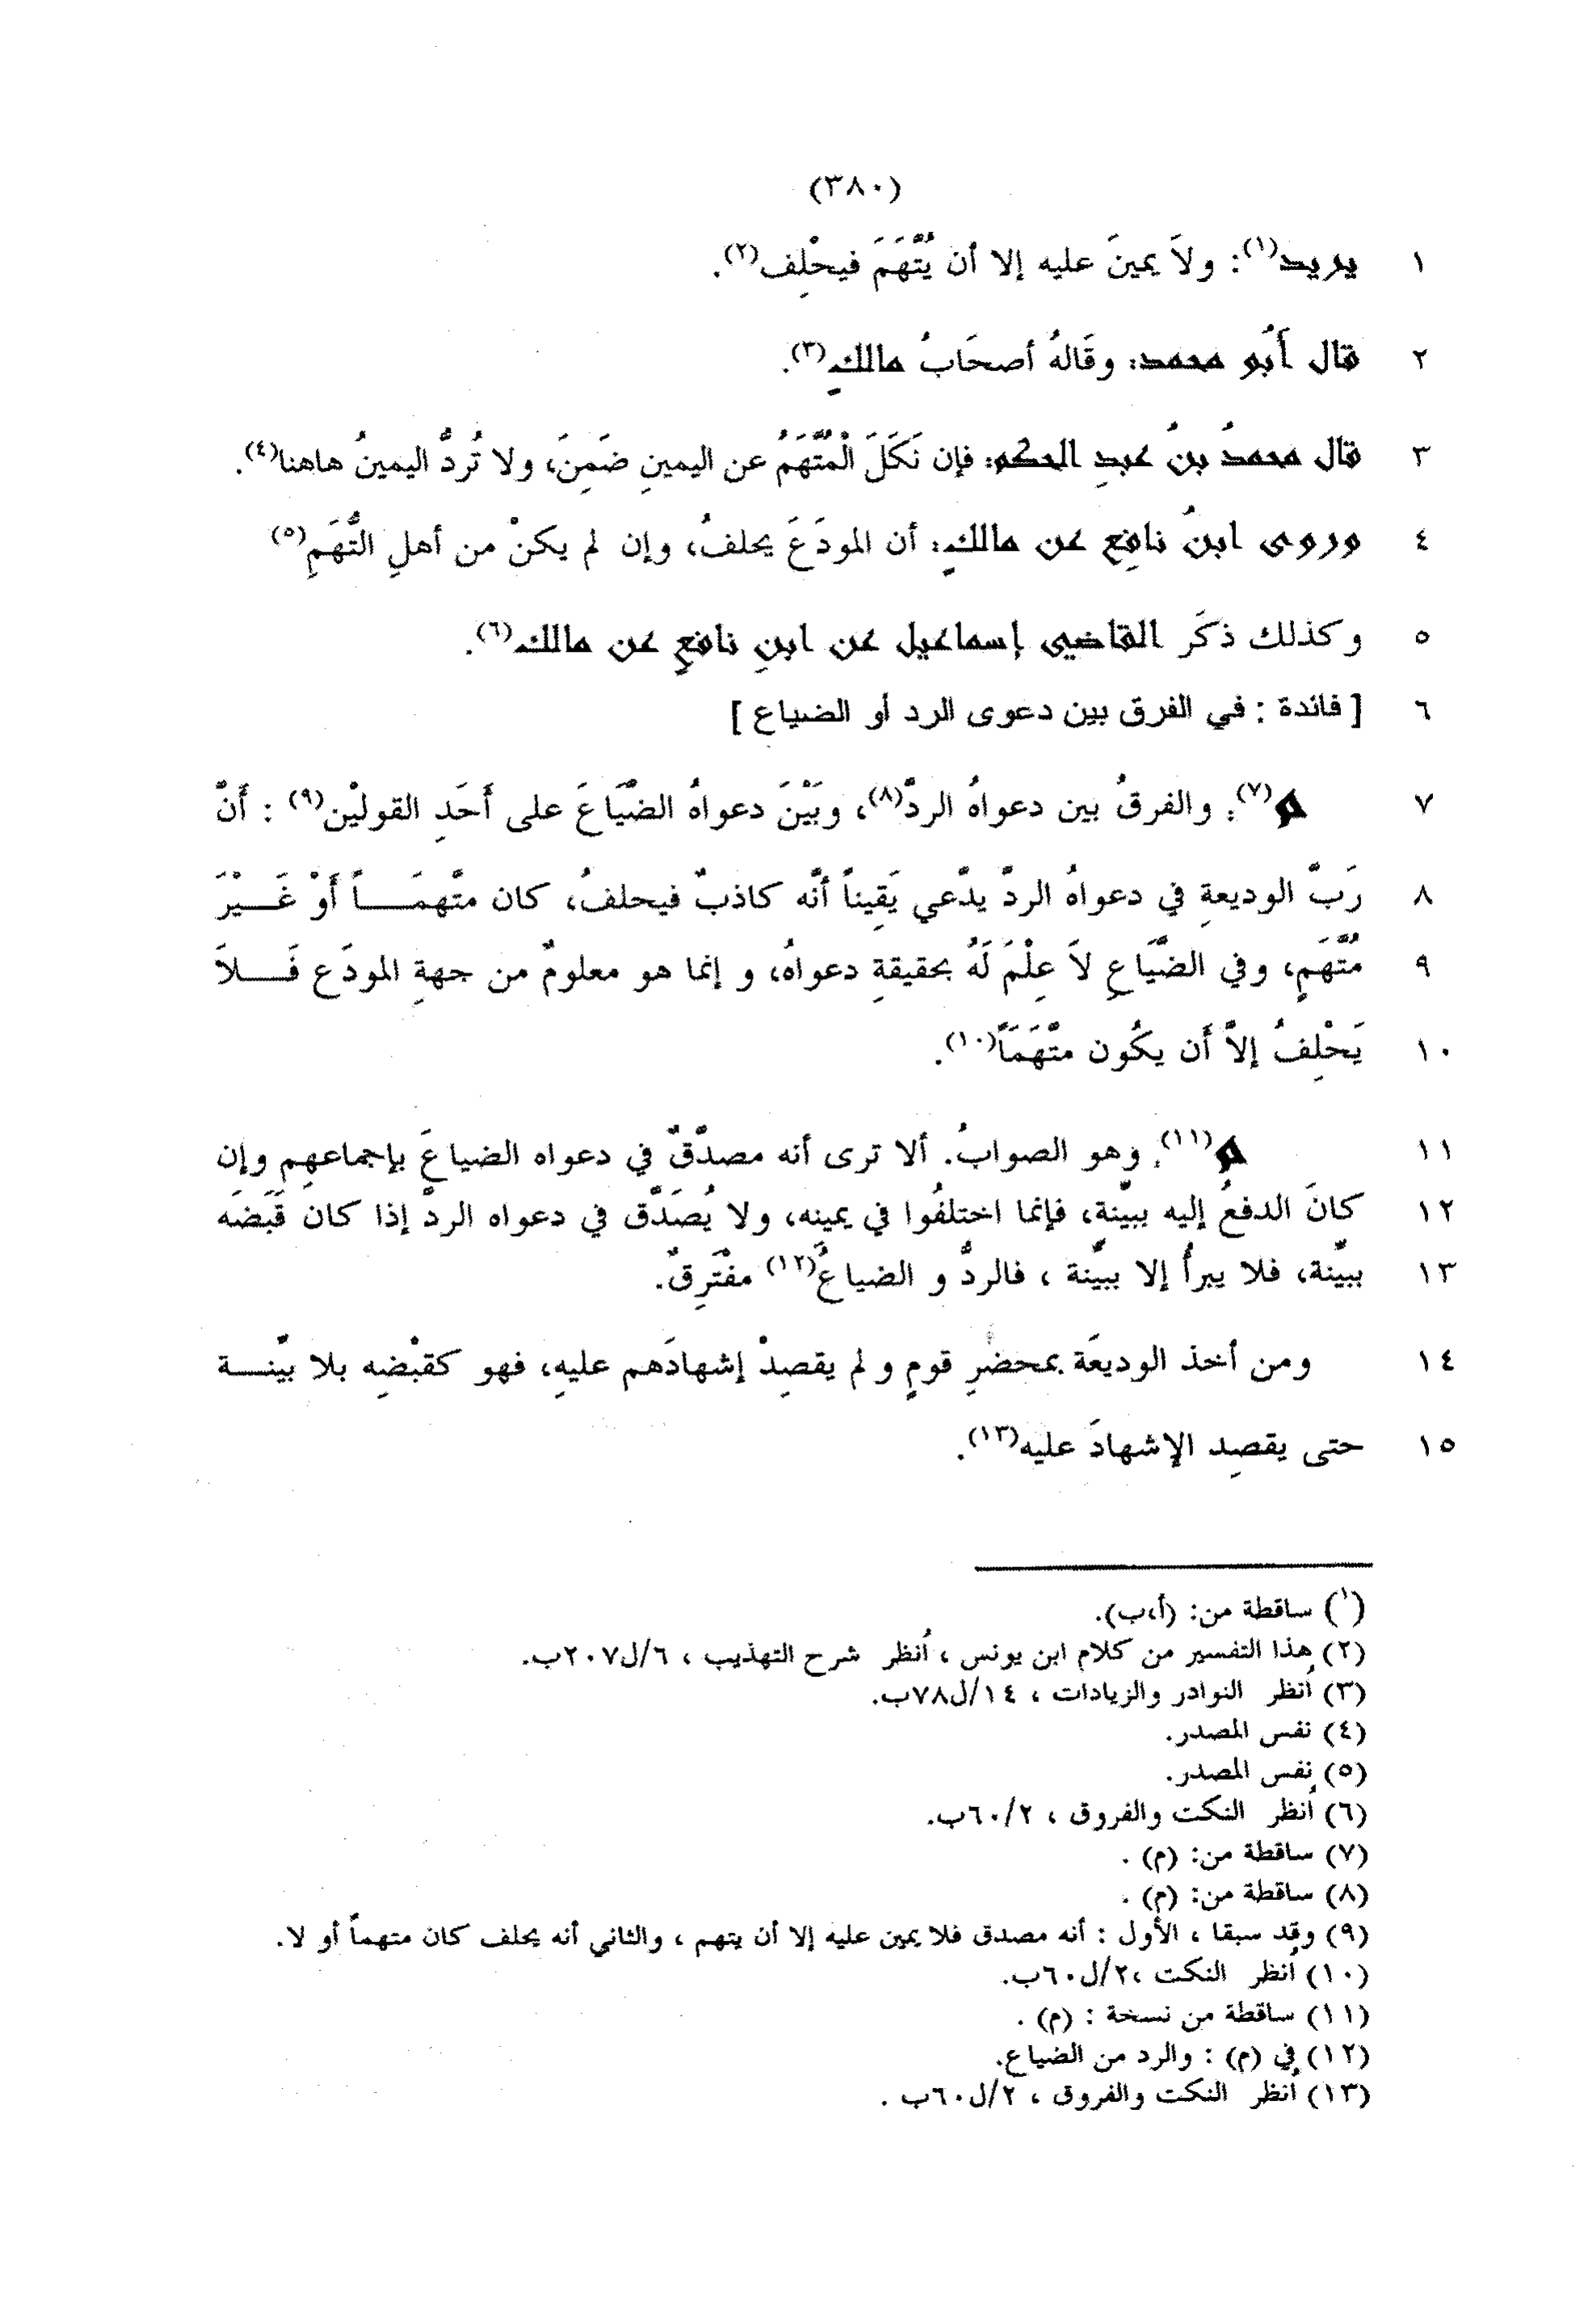 (٣٨٠)
١ يريد(١): ولاَ يمينَ عليه إلا أن يُتَّهَمَ فيحْلِف(٢).
٢ قال أبُو محمد: وقَالهُ أصحَابُ مالكٍ(٣).
٣ قال محمدُ بنُ عبدِ الحكم: فإن نَكَلَ الْمُتَّهَمُ عن اليمينِ ضَمِنَ، ولا تُردُّ اليمينُ هاهنا(٤).
٤ وروى ابنُ نافِع عن مالكٍ: أن المودَعَ يحلفُ، وإن لم يكنْ من أهلِ التُّهَمِ(٥)
٥ وكذلك ذكَر القاضيي إسماعيل عن ابنِ نافعٍ عن مالك(٦).
٦ [ فائدة : في الفرق بين دعوى الرد أو الضياع ]
٧ م(٧): والفرقُ بين دعواهُ الردَّ(٨)، وبَيْنَ دعواهُ الضَّيَاعَ على أَحَدِ القوليْن(٩) : أَنَّ
٨ رَبَّ الوديعةِ في دعواهُ الردَّ يدَّعي يَقِيناً أنَّه كاذبٌ فيحلفُ، كان متَّهمَـــاً أَوْ غَـــيْرَ
٩ مُتَّهَمٍ، وفي الضَّيَاعِ لاَ عِلْمَ لَهُ بحقيقةِ دعواهُ، و إنما هو معلومٌ من جهةِ المودَع فَـــلاَ
١٠ يَحْلِفُ إلاَّ أَن يكُون متَّهَمَاً(١٠).
١١ م(١١): وهو الصوابُ. ألا ترى أنه مصدَّقٌ في دعواه الضياعَ بإجماعهِم وإن
١٢ كانَ الدفعُ إليه ببيّنةٍ، فإنما اختلفُوا في يمينِه، ولا يُصَدَّق في دعواه الردَّ إذا كان قَبَضَه
١٣ ببيّنة، فلا يبرأُ إلا ببيّنة ، فالردُّ و الضياعُ(١٢) مفْتَرِقٌ.
١٤ ومن أخذ الوديعَة بمحضرِ قومٍ و لم يقصِدْ إشهادَهم عليهِ، فهو كقبْضِه بلا بيّنـــة
١٥ حتى يقصِد الإشهادَ عليه(١٣).
(١) ساقطة من: (أ،ب).
(٢) هذا التفسير من كلام ابن يونس ، أُنظر شرح التهذيب ، ٦/ل٢٠٧ب.
(٣) أنظر النوادر والزيادات ، ١٤/ل٧٨ب.
(٤) نفس المصدر.
(٥) نفس المصدر.
(٦) اُنظر النكت والفروق ، ٦٠/٢ب.
(٧) ساقطة من: (م) .
(٨) ساقطة من: (م) .
(٩) وقد سبقا ، الأول : أنه مصدق فلا يمين عليه إلا أن يتهم ، والثاني أنه يحلف كان متهماً أو لا.
(١٠) أنظر النكت ،٢/ل٦٠ب.
(١١) ساقطة من نسخة : (م) .
(١٢) في (م) : والرد من الضياع.
(١٣) اُنظر النكت والفروق ، ٢/ل٦٠ب .